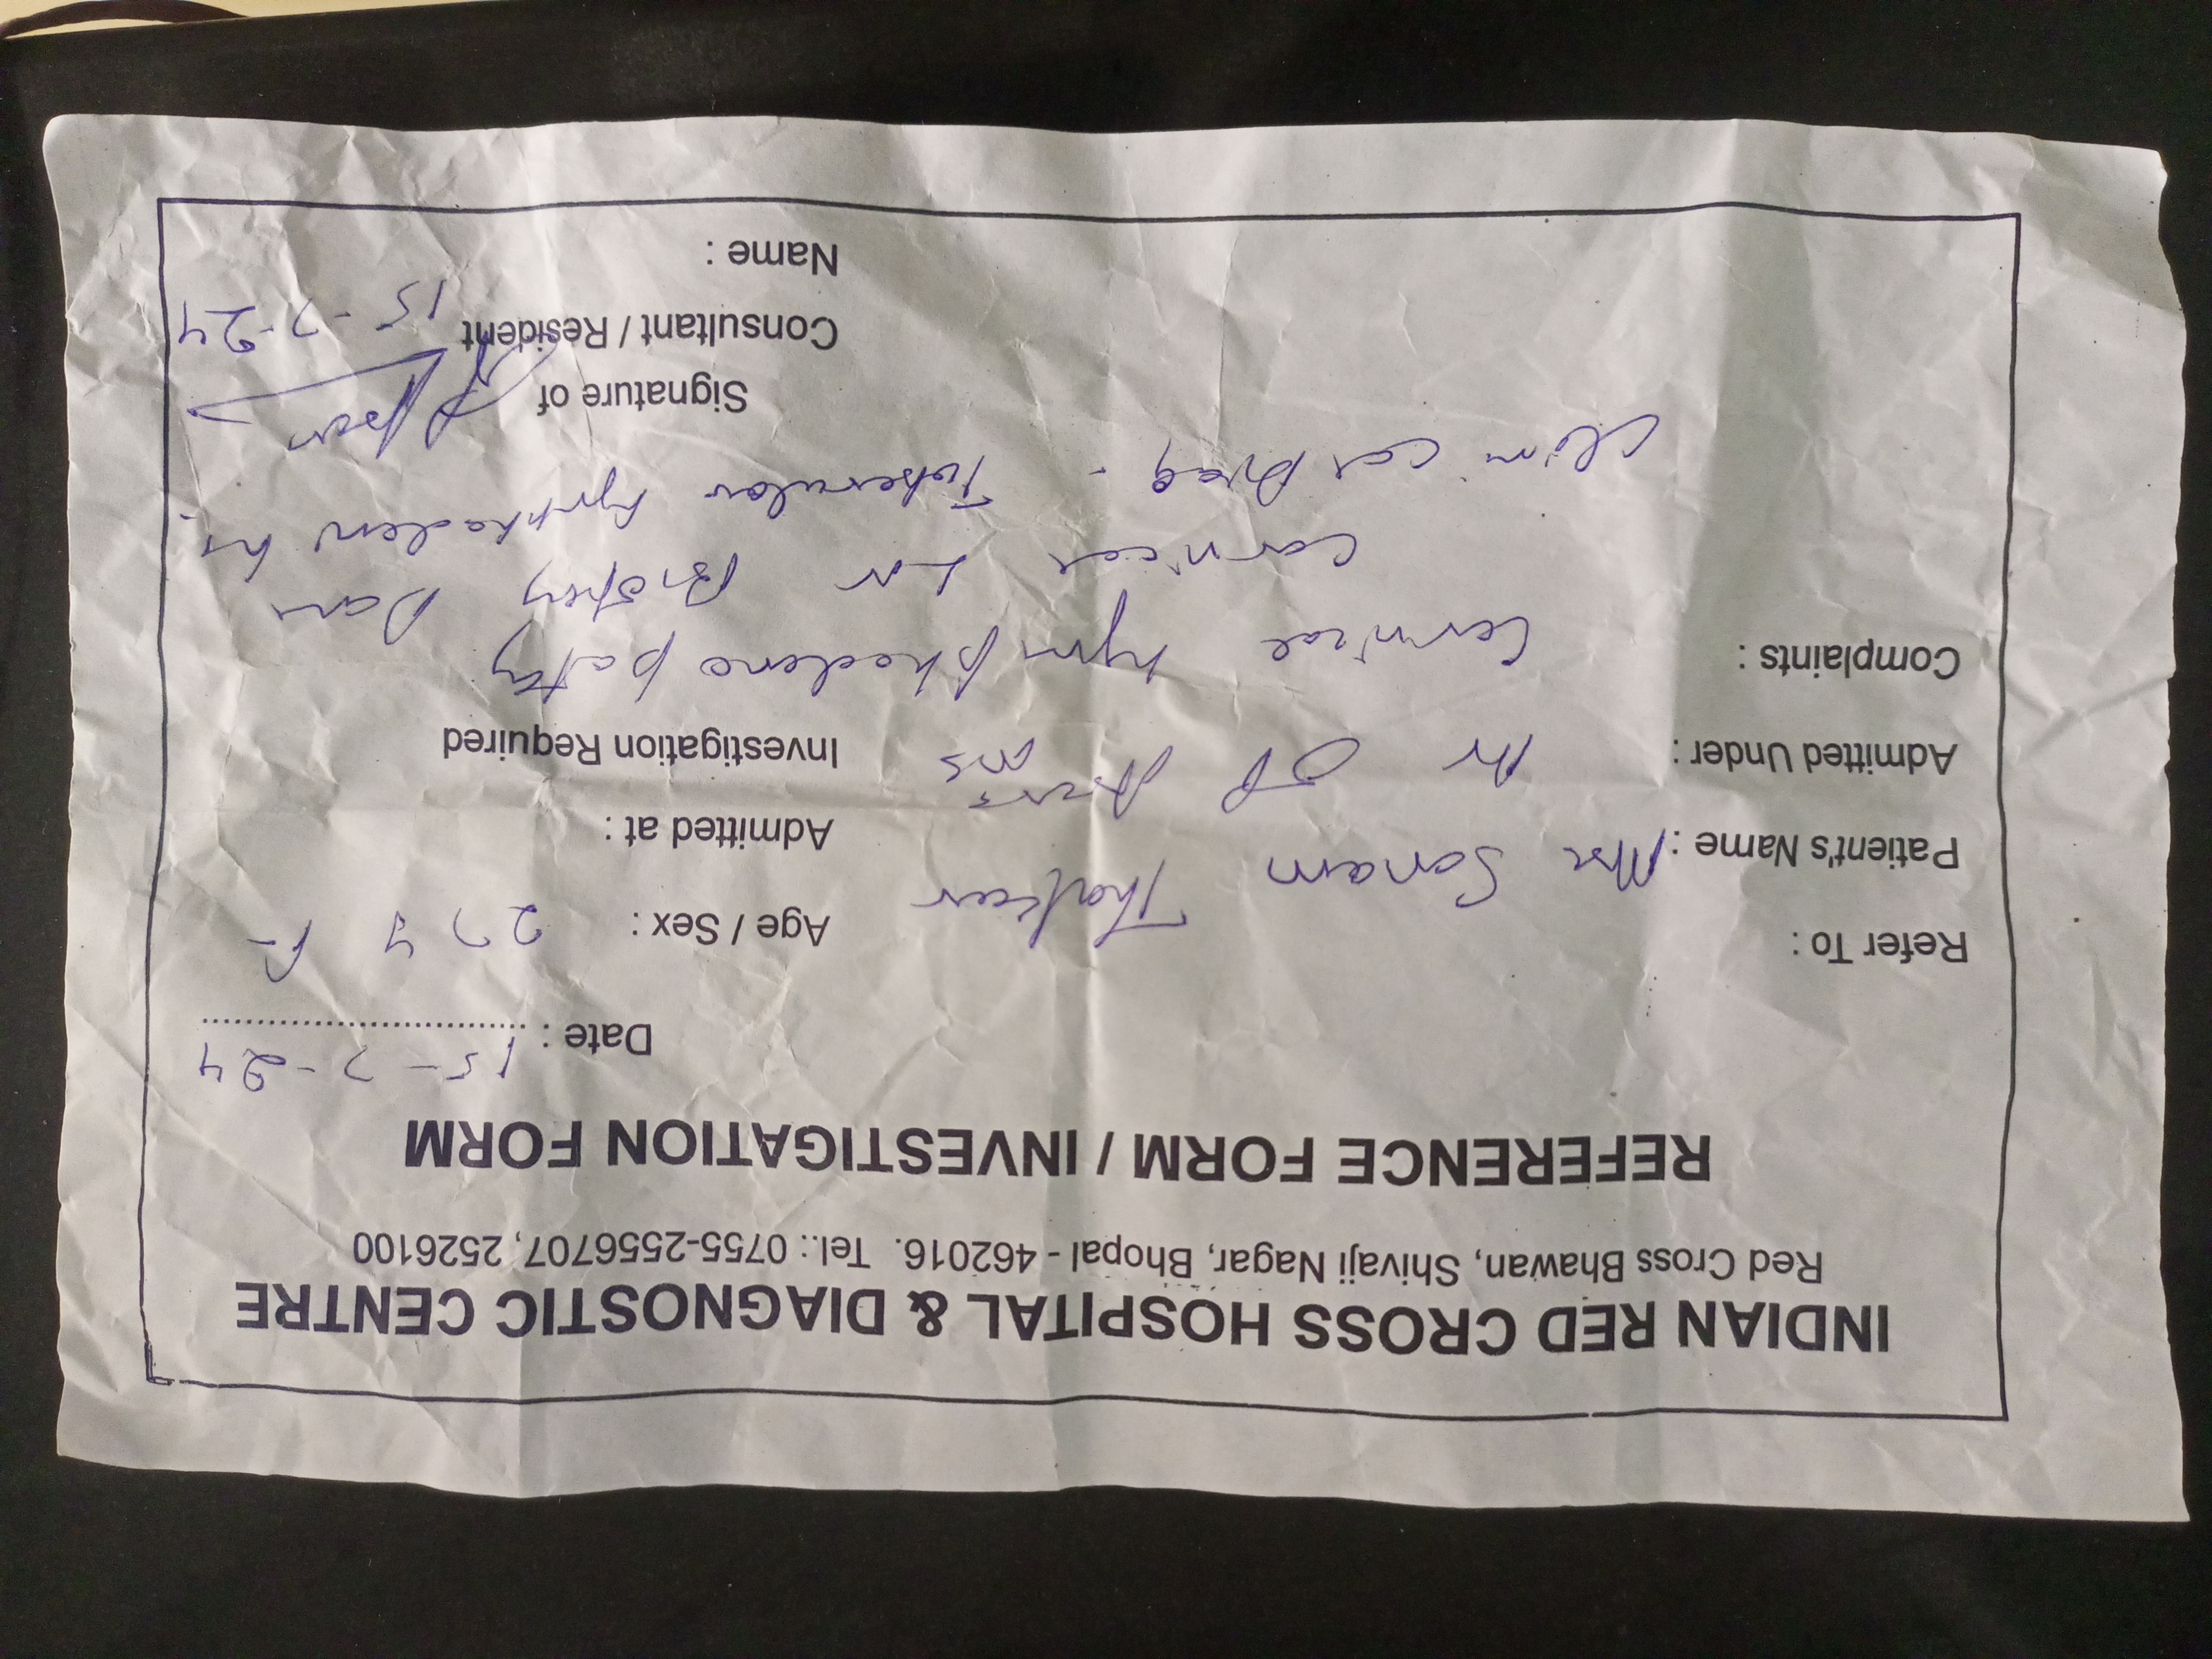 INDIAN RED CROSS HOSPITAL & DIAGNOSTIC CENTRE
Red Cross Bhawan, Shivaji Nagar, Bhopal - 462016. Tel.: 0755-2556707, 2526100
REFERENCE FORM / INVESTIGATION FORM
15-7-24
Date :
Refer To :
Age / Sex : 27 y F
Patient's Name : Mrs Sonam Thakur
Admitted at :
Admitted Under : Dr OP
MS
Investigation Required
Complaints :
Cervical lymphadenopathy
Cervical LN Biopsy
Clinical Diag. Tubercular lymphadenitis.
Signature of
Consultant / Resident
15-7-24
Name :